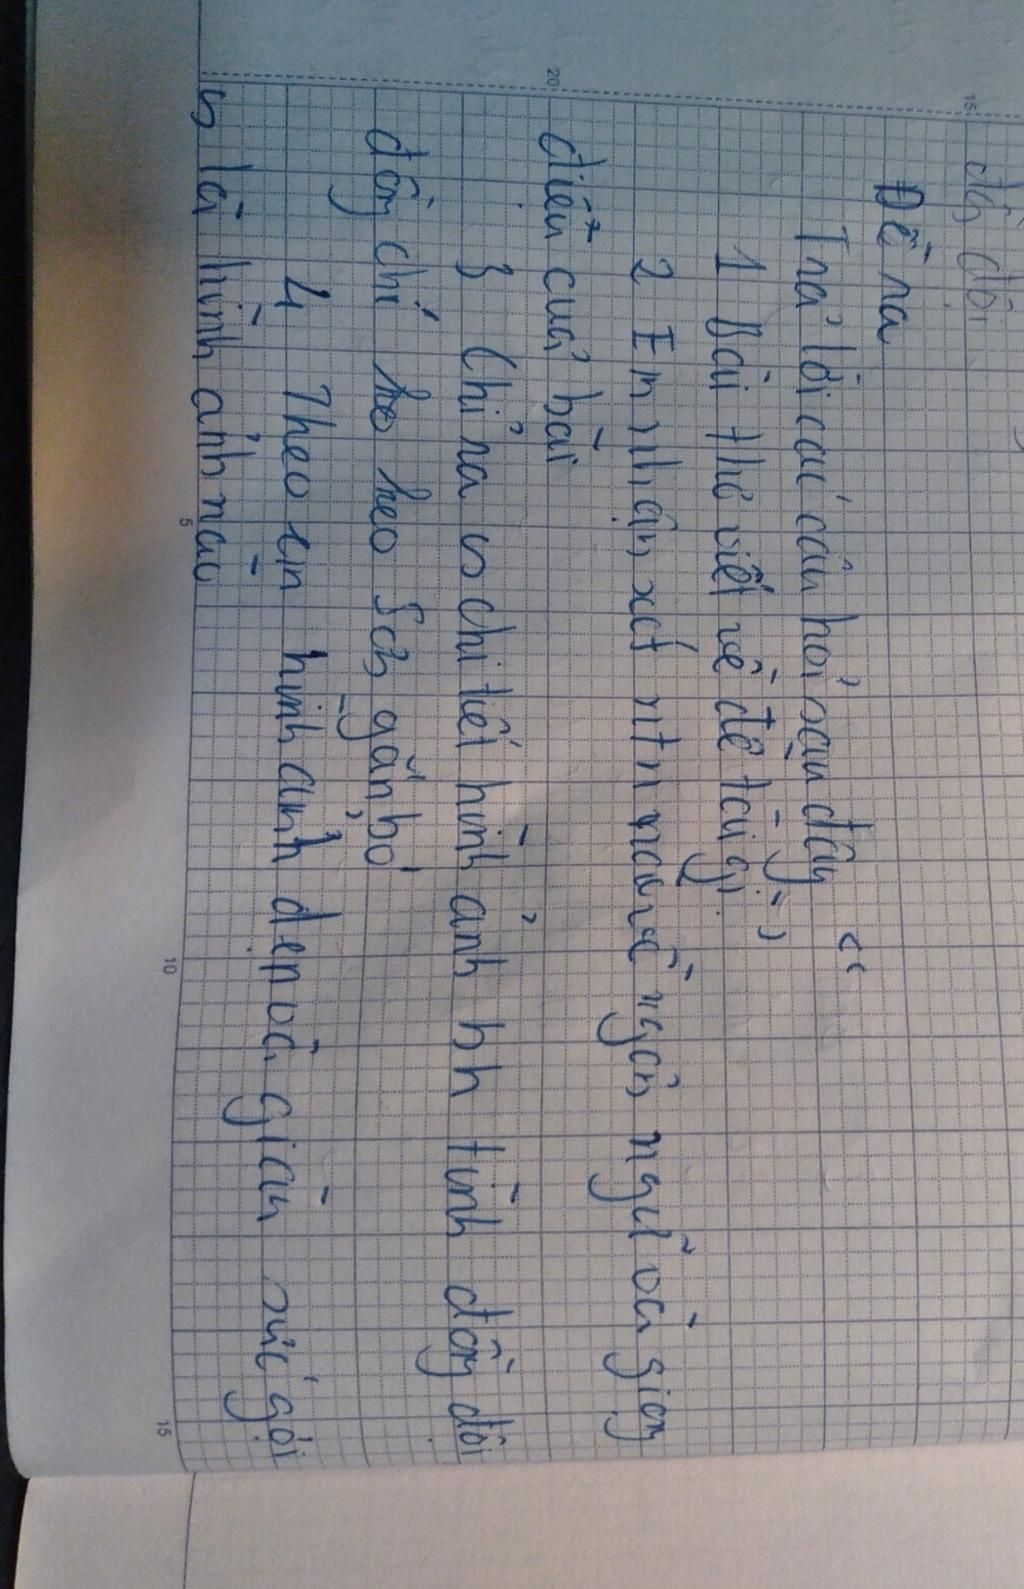 đội
Đề ra
Trả lời các câu hỏi sau đây
1 Bài thơ viết về đề tài gì
2 Em nhận xét ntn ngôn ngữ và giọng
điệu của bài
3 Chỉ ra chi tiết hình ảnh tình đồng đội
đồng chí keo sơn gắn bó
4 Theo em hình ảnh đẹp và giàu sức gợi
là hình ảnh nào
15
20
5
10
15